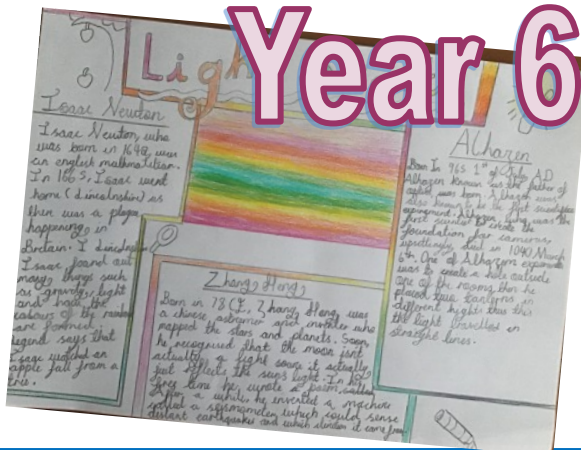 Year 6
Ligh
Isaac Newton
Isaac Newton, who
was born in 1642, was
an english mathmatician.
In 1665, Isaac went
home (Lincolnshire) as
there was a plague
happening in
Britain. I
Isaac found out
many things such
as gravity, light
and how the
colours of the rainbow
are formed.
legend says that
Isaac watched an
apple fall from a
tree.
Zhang Heng
Born in 78 CE, Zhang Heng was
a chinese, astronomer and inventor who
mapped the stars and planets. Soon,
he recognised that the moon isnt
actually a light source it actually
just reflects the suns light. In his
free time he wrote a poem
After a while, he invented a machine
called a seismometer which could sense
distant earthquakes and which direction it came from
Alhazen
Born In 965 1st of July AD
Alhazen known as the father of
optics was born. Alhazen was
also known to be the first scientific
Alhazen was the
first scientist to create the
foundation for cameras,
died in 1040 March
6th. One of Alhazens experiments
was to create a hole outside
one of the rooms, then he
placed two lanterns in
different hights thus this
the light travelled in
straight lines.